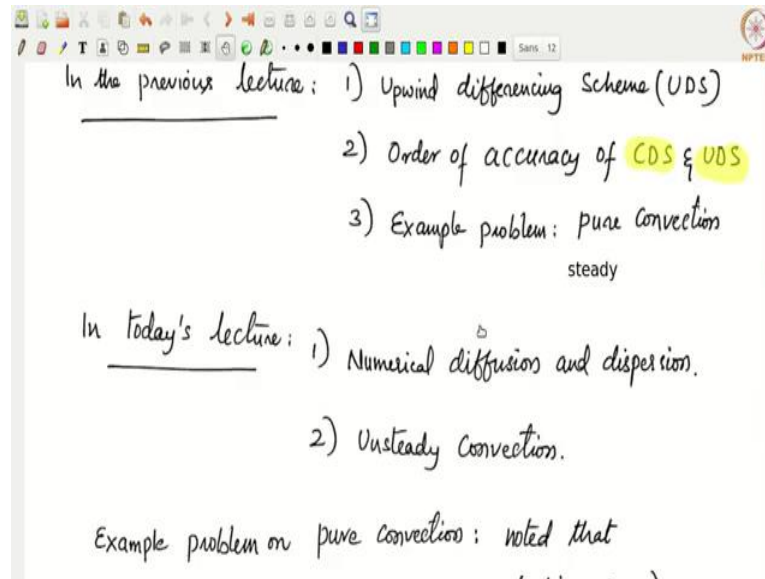 Sans 12
NPTEL
In the previous lecture: 1) Upwind differencing Scheme (UDS)
2) Order of accuracy of CDS & UDS
3) Example problem: pure convection
steady
In today's lecture: 1) Numerical diffusion and dispersion.
2) Unsteady Convection.
Example problem on pure convection: noted that